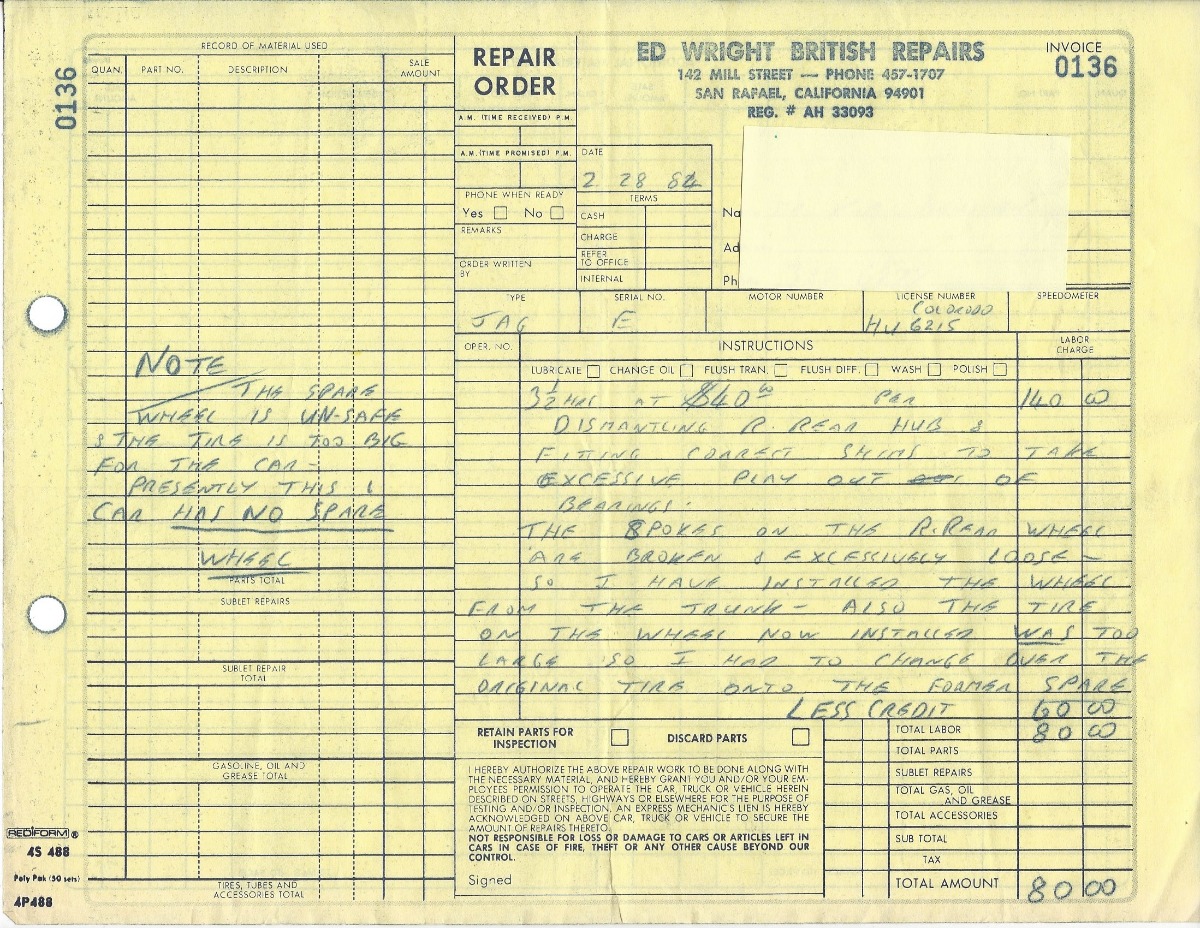 RECORD OF MATERIAL USED
QUAN. PART NO. DESCRIPTION SALE AMOUNT
0136
NOTE
THE SPARE
WHEEL IS UN-SAFE
& THE TIRE IS TOO BIG
FOR THE CAR-
PRESENTLY THIS
CAR HAS NO SPARE
WHEEL
PARTS TOTAL
SUBLET REPAIRS
SUBLET REPAIR
TOTAL
GASOLINE, OIL AND
GREASE TOTAL
TIRES, TUBES AND
ACCESSORIES TOTAL
REDIFORM ®
4S 488
Poly Pak (50 sets)
4P488
REPAIR
ORDER
A.M. (TIME RECEIVED) P.M.
A.M. (TIME PROMISED) P.M.
PHONE WHEN READY
Yes No
REMARKS
ORDER WRITTEN
BY
DATE
2 28 84
TERMS
CASH
CHARGE
REFER
TO OFFICE
INTERNAL
ED WRIGHT BRITISH REPAIRS
142 MILL STREET — PHONE 457-1707
SAN RAFAEL, CALIFORNIA 94901
REG. # AH 33093
INVOICE
0136
Na
Ad
Ph
TYPE SERIAL NO. MOTOR NUMBER LICENSE NUMBER SPEEDOMETER
COLORADO
JAG E HU 6215
OPER. NO. INSTRUCTIONS LABOR CHARGE
LUBRICATE CHANGE OIL FLUSH TRAN. FLUSH DIFF. WASH POLISH
3½ HRS AT $40 00 PER 140 00
DISMANTLING R. REAR HUB &
FITTING CORRECT SHIMS TO TAKE
EXCESSIVE PLAY OUT OF
BEARINGS.
THE SPOKES ON THE R.REAR WHEEL
ARE BROKEN & EXCESSIVELY LOOSE -
SO I HAVE INSTALLED THE WHEEL
FROM THE TRUNK - ALSO THE TIRE
ON THE WHEEL NOW INSTALLED WAS TOO
LARGE SO I HAD TO CHANGE OVER THE
ORIGINAL TIRE ONTO THE FORMER SPARE
LESS CREDIT 60 00
RETAIN PARTS FOR
INSPECTION
DISCARD PARTS
TOTAL LABOR 80 00
TOTAL PARTS
SUBLET REPAIRS
TOTAL GAS, OIL
AND GREASE
TOTAL ACCESSORIES
SUB TOTAL
TAX
TOTAL AMOUNT 80 00
I HEREBY AUTHORIZE THE ABOVE REPAIR WORK TO BE DONE ALONG WITH
THE NECESSARY MATERIAL, AND HEREBY GRANT YOU AND/OR YOUR EM-
PLOYEES PERMISSION TO OPERATE THE CAR, TRUCK OR VEHICLE HEREIN
DESCRIBED ON STREETS, HIGHWAYS OR ELSEWHERE FOR THE PURPOSE OF
TESTING AND/OR INSPECTION. AN EXPRESS MECHANIC'S LIEN IS HEREBY
ACKNOWLEDGED ON ABOVE CAR, TRUCK OR VEHICLE TO SECURE THE
AMOUNT OF REPAIRS THERETO.
NOT RESPONSIBLE FOR LOSS OR DAMAGE TO CARS OR ARTICLES LEFT IN
CARS IN CASE OF FIRE, THEFT OR ANY OTHER CAUSE BEYOND OUR
CONTROL.
Signed